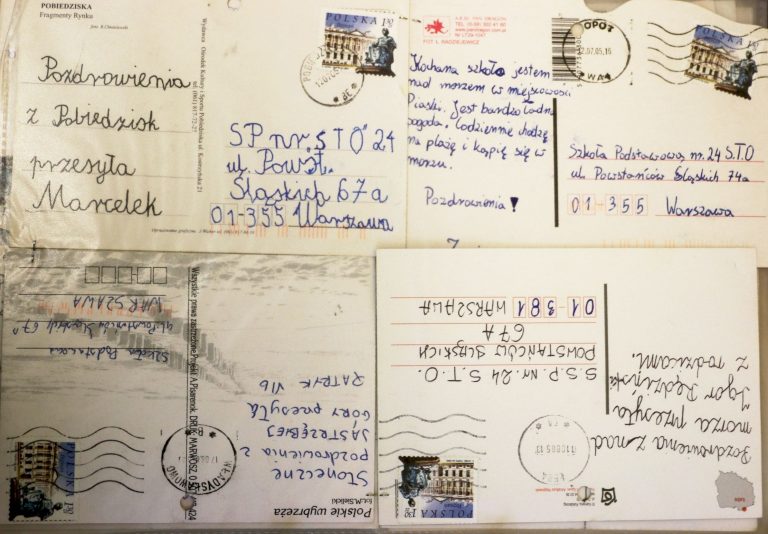 POBIEDZISKA
Fragmenty Rynku
Pozdrowienia
z Pobiedzisk
przesyła
Marcelek
POLSKA
1,30
SP nr „STO” 24
ul. Powst.
Śląskich 67a
01-355 Warszawa
Kochana szkoło jestem
nad morzem w miejscowości
Piaski. Jest bardzo ładna
pogoda. Codziennie chodzę
na plażę i kąpię się w
morzu.
Pozdrowienia!
FOT. L. RADZIEJEWICZ
POLSKA
Szkoła Podstawowa nr. 24 S.T.O
ul. Powstańców Śląskich 74a
01-355 Warszawa
Polskie wybrzeża
fot. M. Sielicki
Słoneczne
pozdrowienia z
JASTRZĘBIEJ
GÓRY przesyła
PATRYK VIb
POLSKA
1,30
Szkoła Podstawowa
ul. Powstańców Śląskich 67
WARSZAWA
Pozdrowienia znad
morza przesyła
Igor Rędziński
z rodzicami.
POLSKA
1,30
S.S.P. Nr 24 S.T.O.
POWSTAŃCÓW ŚLĄSKICH
67A
01-381 WARSZAWA